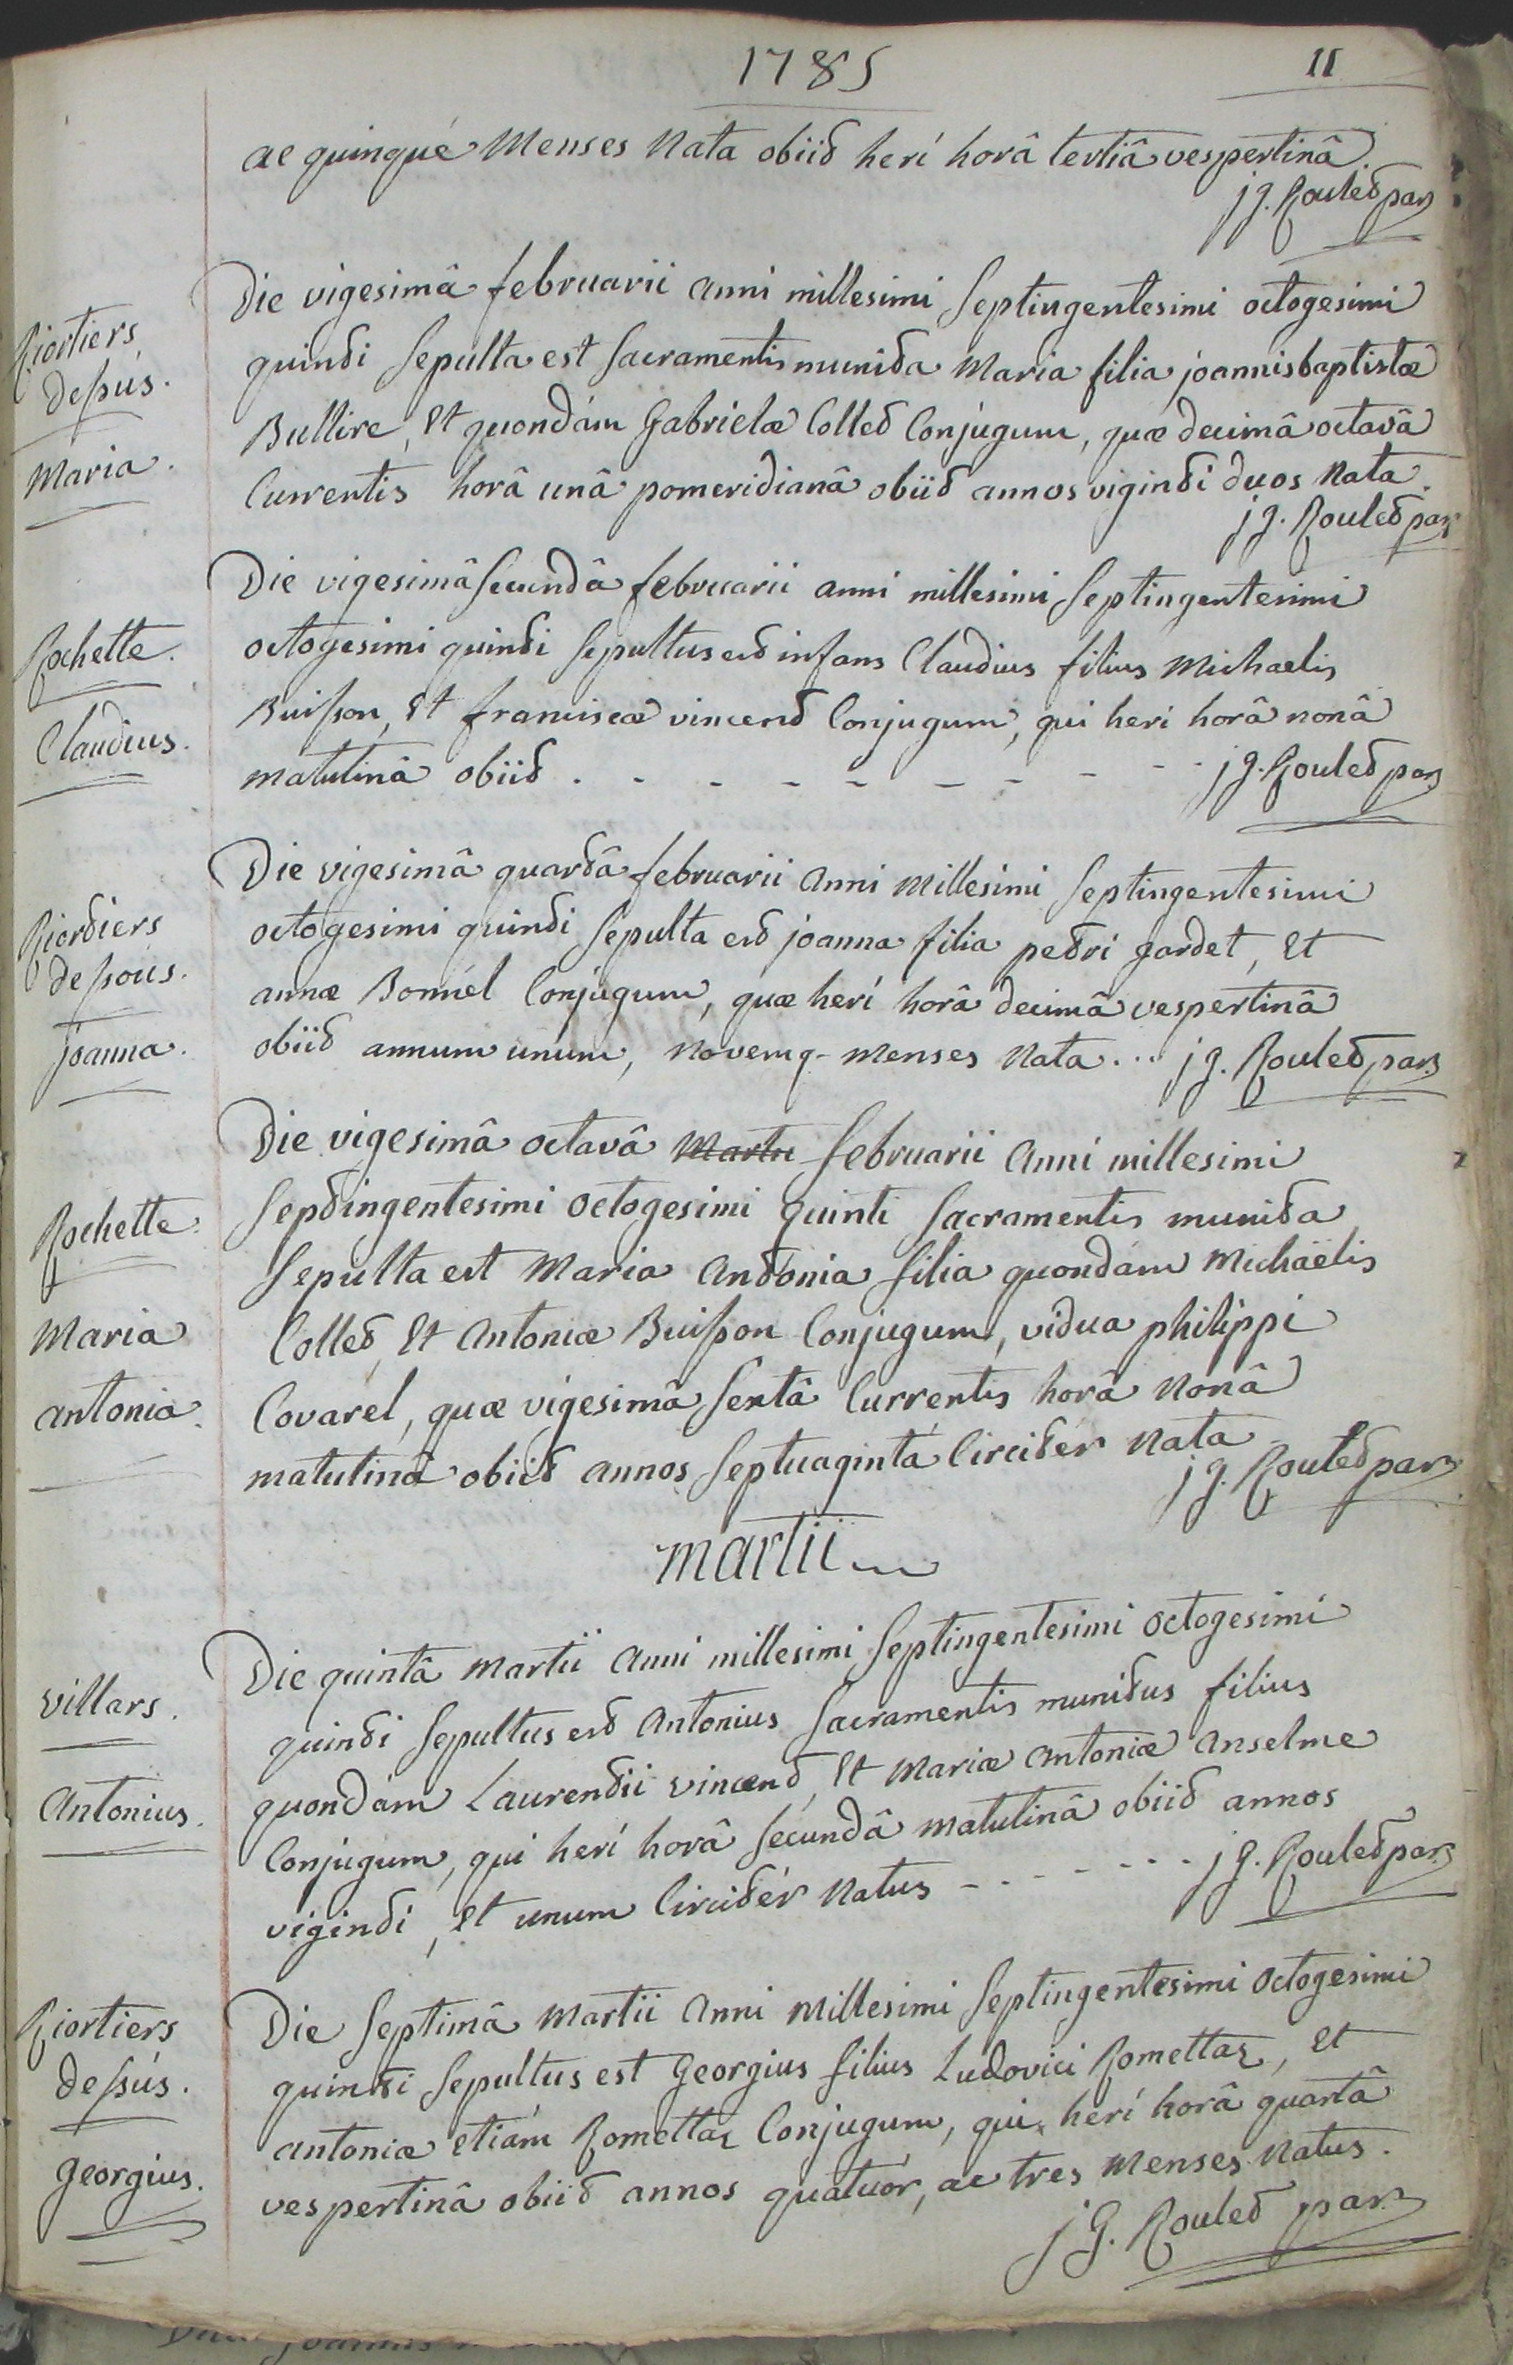 1785
11
ac quinqué Menses Nata obiit herí horâ tertiâ vespertinâ.
j g. Roulet par
Riortiers
dessus.
Maria.
Die vigesimâ februarii anni millesimi Septingentesimi octogesimi
quinti Sepulta est Sacramentis munita Maria filia joannisbaptistæ
Bullire, Et quondám Gabrielæ Collet Conjugum, quæ decimâ octavâ
Currentis horâ unâ pomeridianâ obiit annos viginti duos Nata.
j g. Roulet par
Rochette.
Claudius.
Die vigesimâ Secundâ februarii anni millesimi Septingentesimi
octogesimi quinti Sepultus est infans Claudius filius Michaelis
Buisson, Et franciscæ vincent Conjugum, qui heri horâ nonâ
matutinâ obiit . - - - - - - - - j g. Roulet par
Riortiers
dessous.
joanna.
Die vigesimâ quartâ februarii anni Millesimi Septingentesimi
octogesimi quinti Sepulta est joanna filia petri gardet, Et
annæ Bonnél Conjugum, quæ herí horâ decimâ vespertinâ
obiit annum unum, Novemq- Menses Nata... j g. Roulet par
Rochette.
Maria
antonia.
Die vigesimâ octavâ Martii februarii anni millesimi
Septingentesimi octogesimi quinti Sacramentis munita
Sepulta est Maria antonia filia quondám Michäelis
Collet, Et antoniæ Buisson Conjugum, vidua philippi
Covarel, quæ vigesimâ Sextâ Currentis horâ Nonâ
matutinâ obiit annos Septuagintá Circitér Nata
j g. Roulet par
Martii
villars.
Antonius.
Die quintâ Martii anni millesimi Septingentesimi octogesimi
quinti Sepultus est Antonius Sacramentis munitus filius
quondám Laurentii vincent, Et Mariæ antoniæ anselme
Conjugum, qui herí horâ Secundâ matutinâ obiit annos
viginti, Et unum Circitér Natus - - - - - - - j g. Roulet par
Riortiers
dessús.
georgius.
Die Septimâ Martii anni Millesimi Septingentesimi octogesimi
quinti Sepultus est Georgius filius Ludovici Romettaz, Et
antoniæ etiám Romettaz Conjugum, qui herí horâ quartâ
vespertinâ obiit annos quatuór, ac tres Menses Natus.
j G. Roulet par